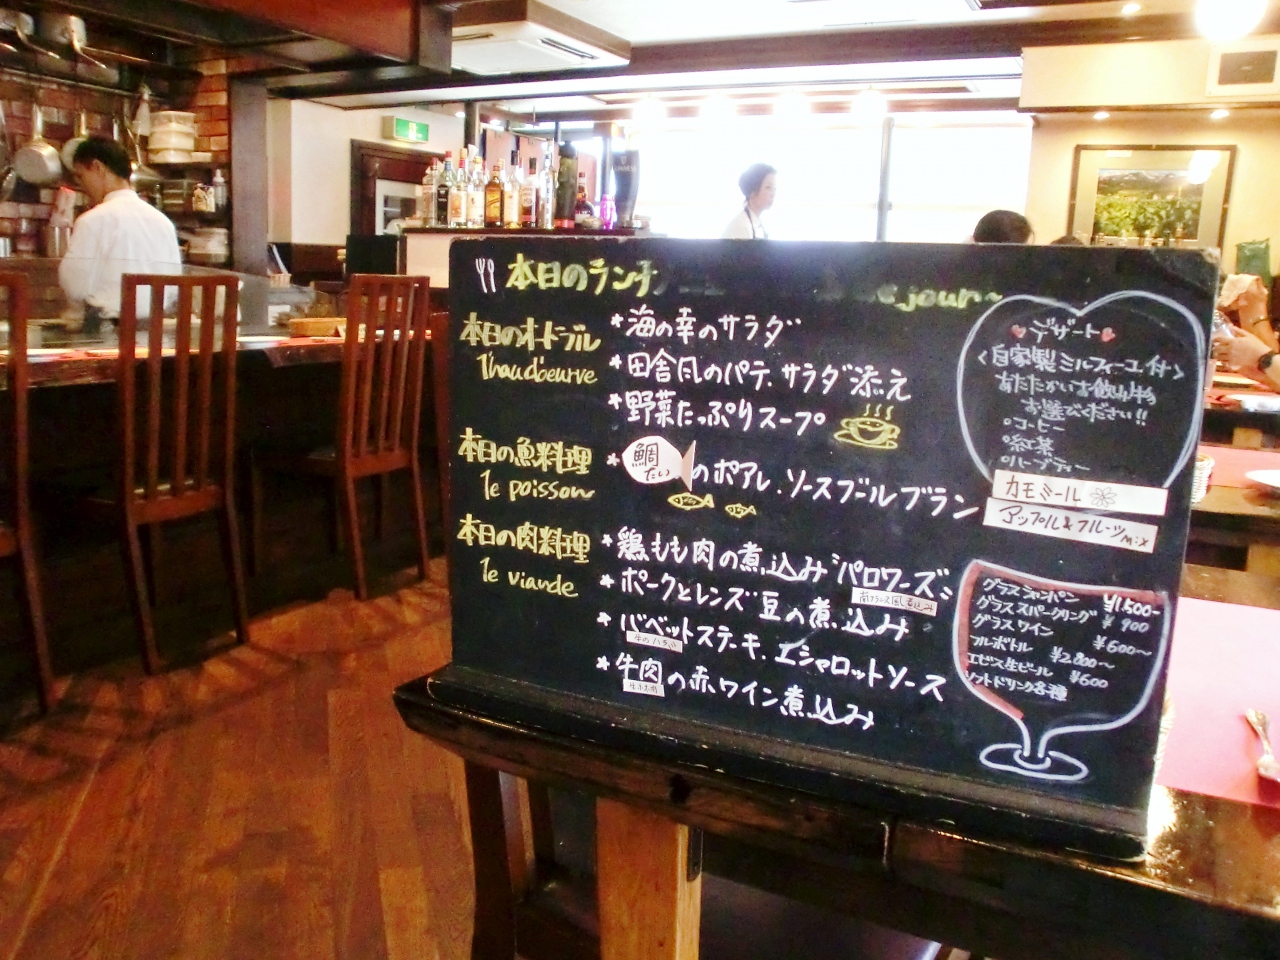 本日のランチ
jour
本日のオードブル
l'haud'oeurve
*海の幸のサラダ
*田舎風のパテ、サラダ添え
*野菜たっぷりスープ
本日の魚料理
le poisson
*鯛のポアレ、ソースブールブラン
たい
本日の肉料理
le viande
*鶏もも肉の煮込み"バロワーズ"
南フランス風煮込み
*ポークとレンズ豆の煮込み
*バベットステーキ、エシャロットソース
牛のハラミ
*牛肉の赤ワイン煮込み
デザート
<自家製ミルフィーユ付>
あたたかいお飲み物
お選びください!!
°コーヒー
°紅茶
°ハーブティー
カモミール
アップル&フルーツmix
グラスシャンパン ¥1,500-
グラススパークリング ¥900
グラスワイン ¥600~
フルボトル ¥2,800~
エビス生ビール ¥600
ソフトドリンク各種